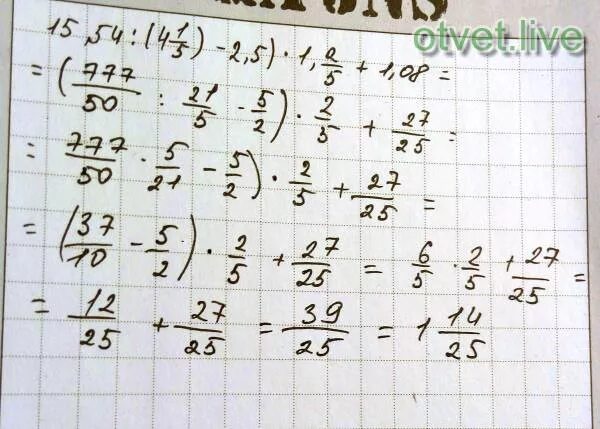 otvet.live
15,54 : (4 1/5) - 2,5) · 1, 2/5 + 1,08 =
= (777/50 : 21/5 - 5/2) · 2/5 + 27/25 =
= 777/50 · 5/21 - 5/2) · 2/5 + 27/25 =
= (37/10 - 5/2) · 2/5 + 27/25 = 6/5 · 2/5 + 27/25 =
= 12/25 + 27/25 = 39/25 = 1 14/25